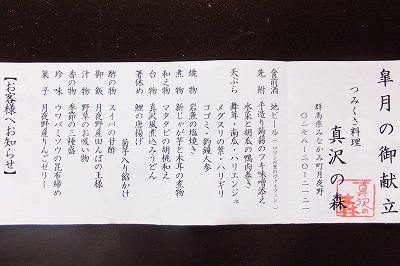 皐月の御献立
つみくさ料理
真沢の森
群馬県みなかみ町月夜野
〇二七八-二〇-二一二一
食前酒 地ビール
先附 手造り蒟蒻のフキ味噌添え
水菜と胡瓜の鴨肉巻き
天ぷら 舞茸・南瓜・ハリエンジュ
メグスリの葉・ハリギリ
コゴミ・釣鐘人参
焼物 岩魚の塩焼き
煮物 新じゃが芋と木耳の煮物
和え物 マタタビの胡桃和え
台物 真沢風煮込みうどん
箸休め 鯉の唐揚げ
菊芋入り餡かけ
酢の物 スイバの甘酢
御飯 月夜野産田んぼの王様
汁物 野草のお吸い物
香の物 季節の三種盛
珍味 ウワバミソウの昆布締め
菓子 月夜野産りんごゼリー
【お客様へお知らせ】